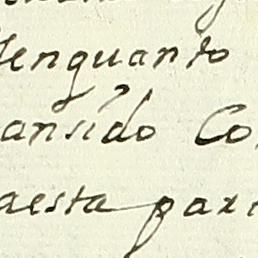 enquanto
ansido Co
aesta par